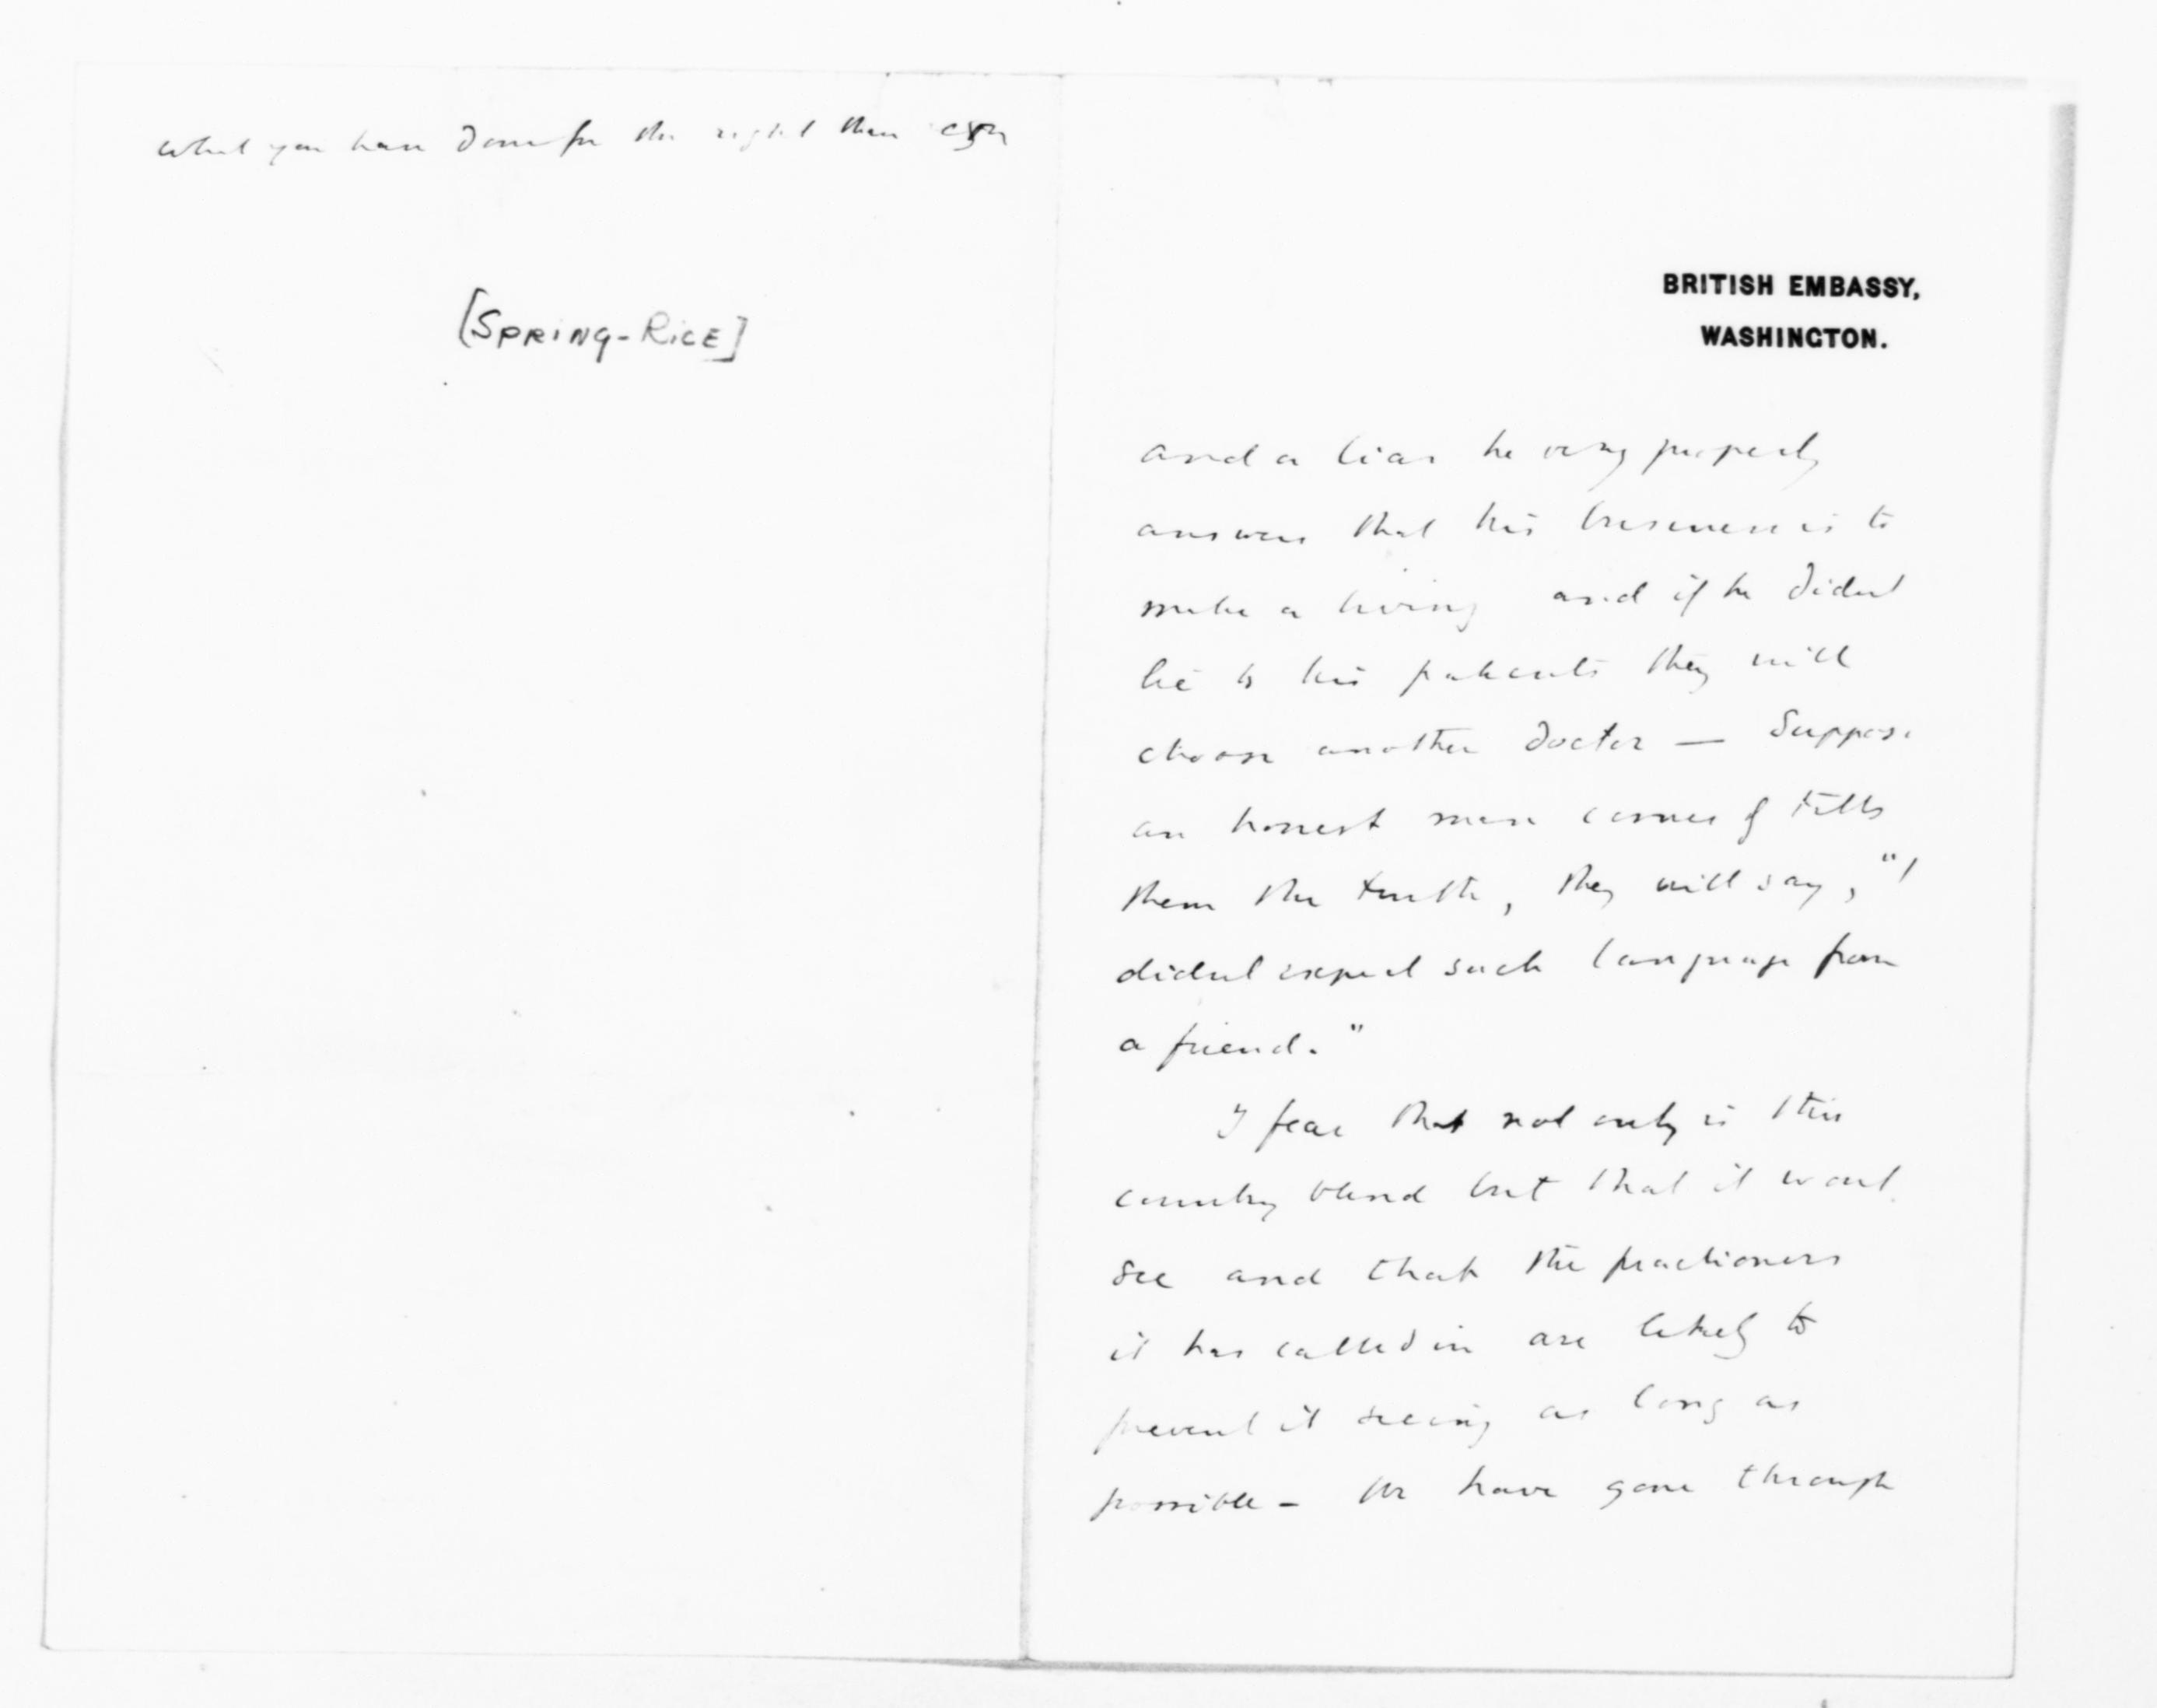 what you have done for the right than ever
[SPRING-RICE]
BRITISH EMBASSY,
WASHINGTON.
and a liar he very properly
answers that his business is to
make a living and if he didnt
lie to his patients they will
choose another doctor — Suppose
an honest man comes & tells
them the truth, they will say, "I
didnt expect such language from
a friend."
I fear that not only is this
country blind but that it wont
see and that the practioners
it has called in are likely to
prevent it seeing as long as
possible - We have gone through